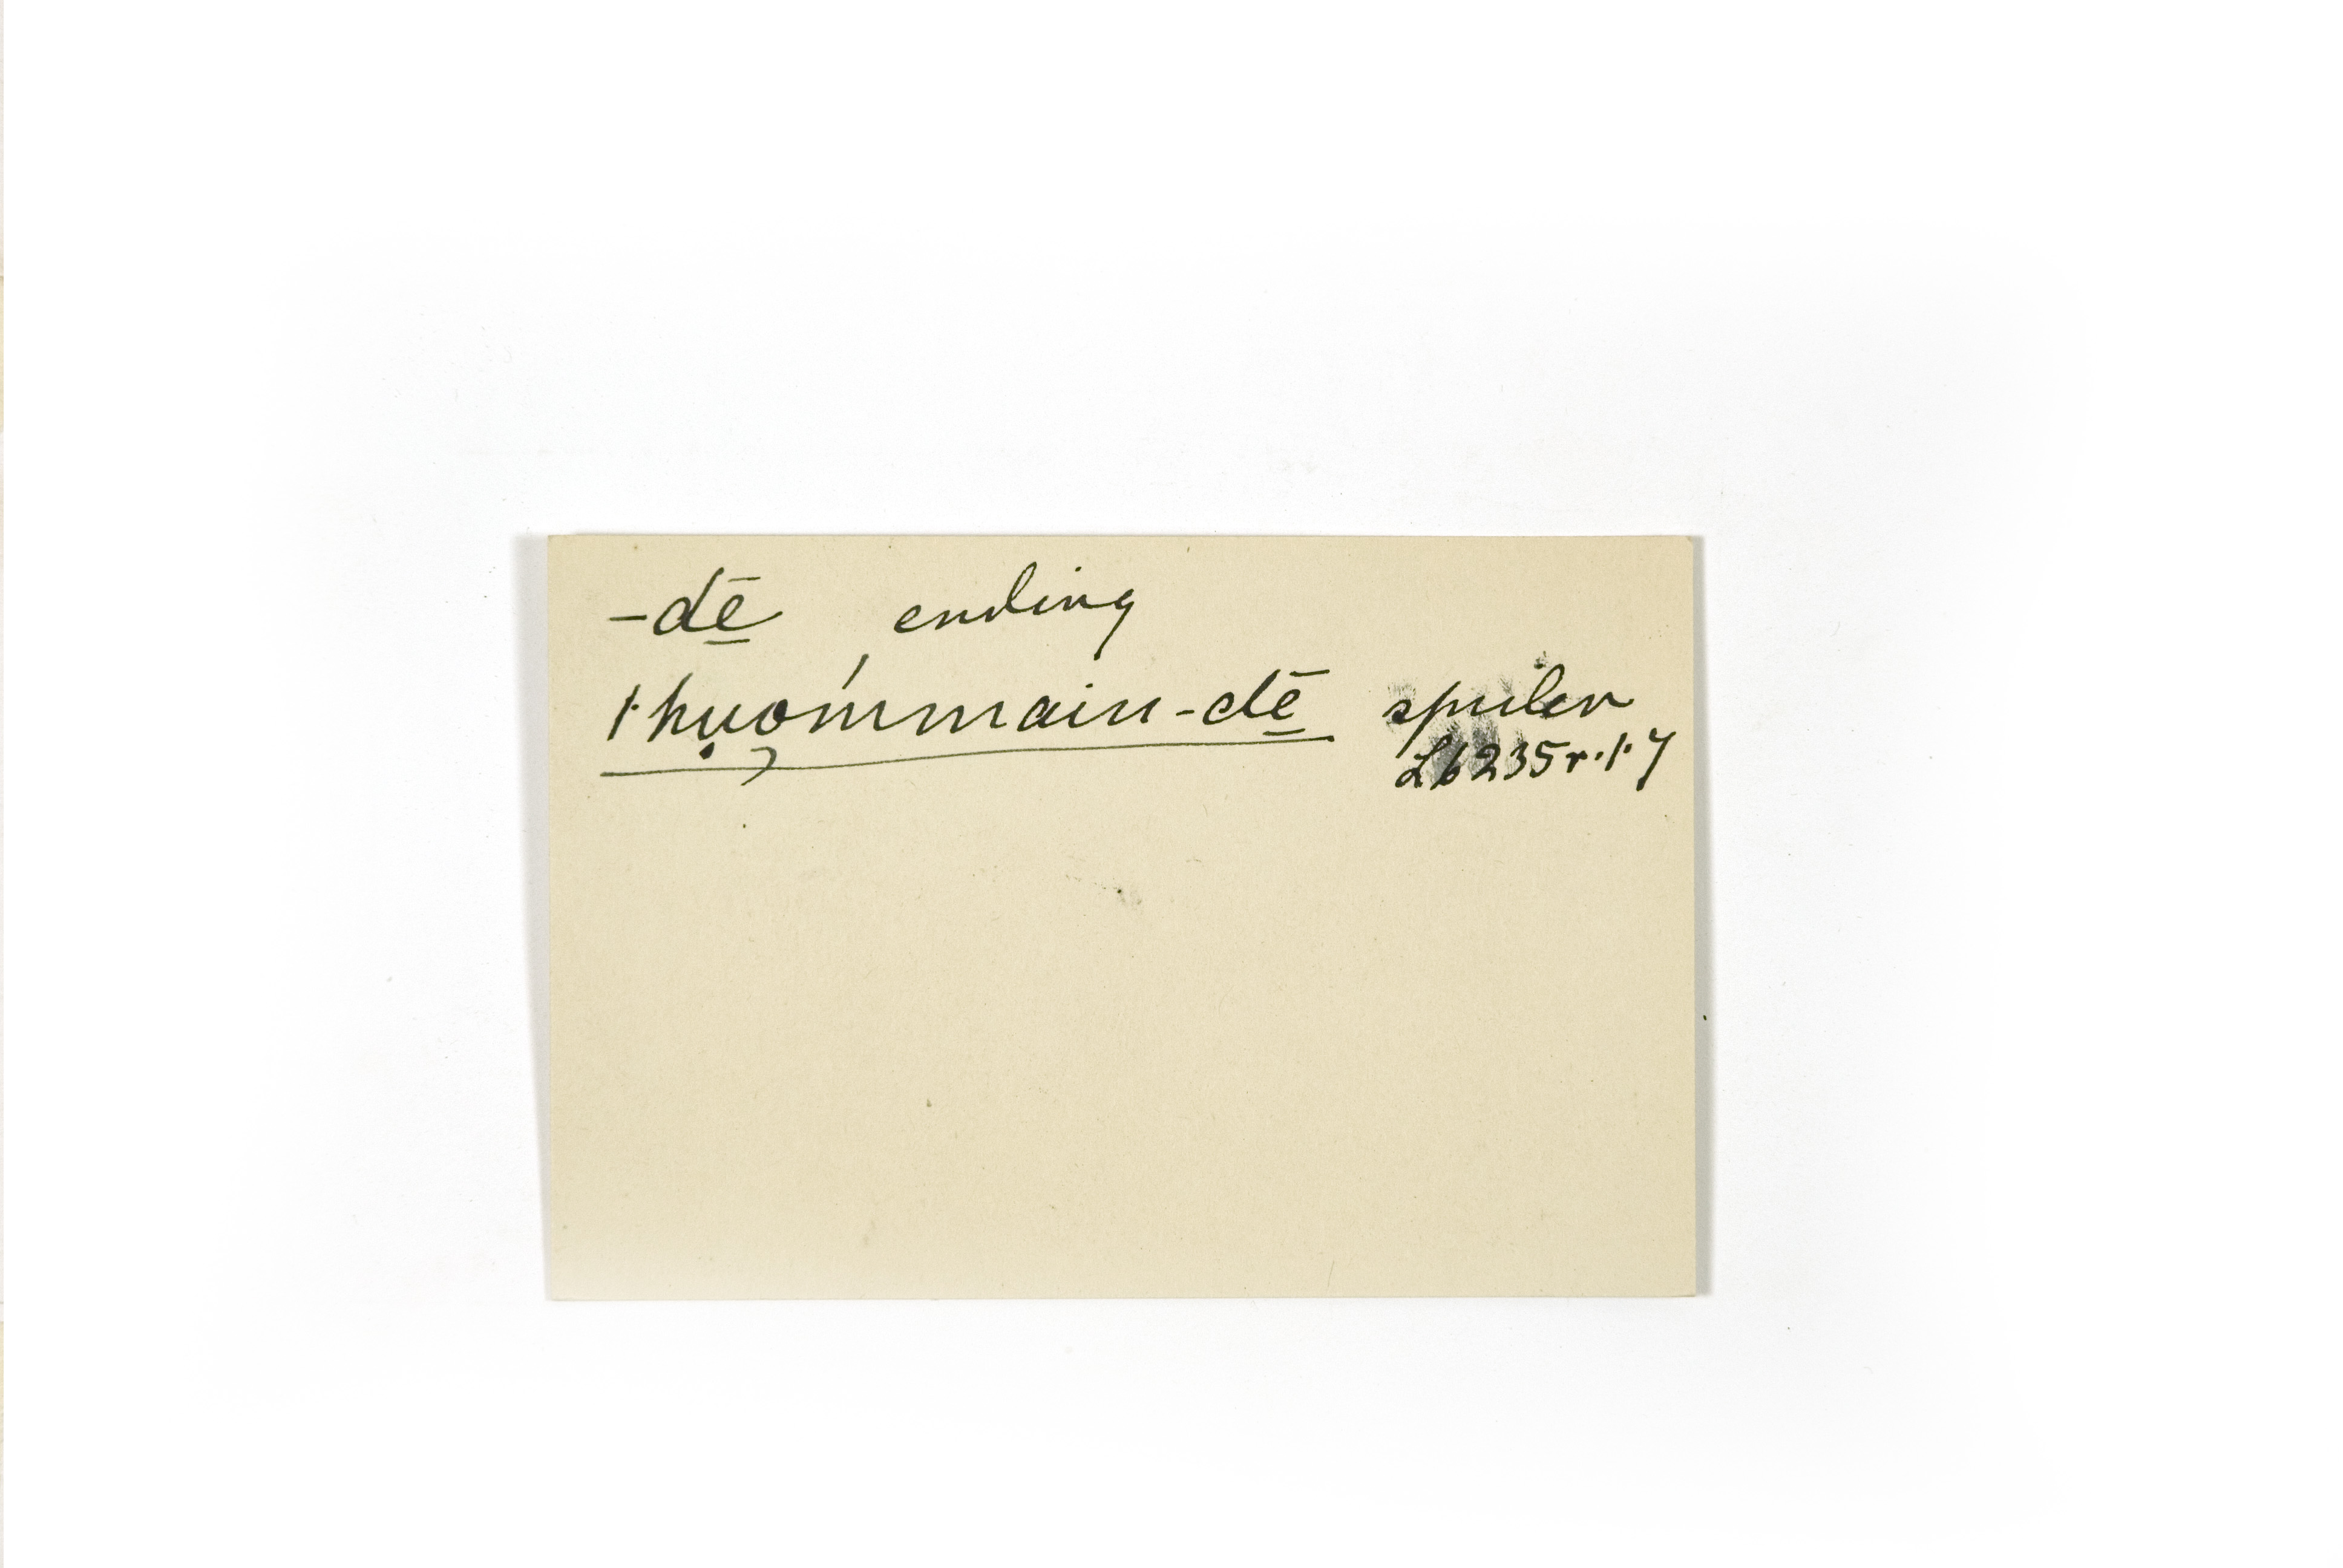 -dē̱ ending
thụǫ́mmain-dē̱ spiler
L6235r.1.7